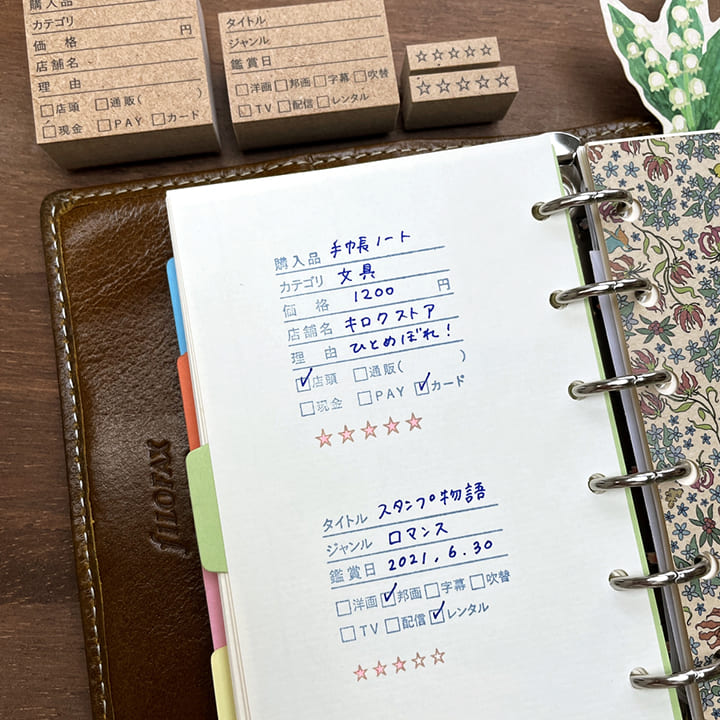 購入品
カテゴリ
価 格 円
店舗名
理 由
□店頭 □通販( )
□現金 □PAY □カード
タイトル
ジャンル
鑑賞日
□洋画 □邦画 □字幕 □吹替
□TV □配信 □レンタル
☆☆☆☆☆
☆☆☆☆☆
購入品 手帳ノート
カテゴリ 文具
価 格 1200 円
店舗名 キロクストア
理 由 ひとめぼれ!
☑店頭 □通販( )
□現金 □PAY ☑カード
★★★★★
タイトル スタンプ物語
ジャンル ロマンス
鑑賞日 2021.6.30
□洋画 ☑邦画 □字幕 □吹替
□TV □配信 ☑レンタル
★★★★☆
fILOFAX